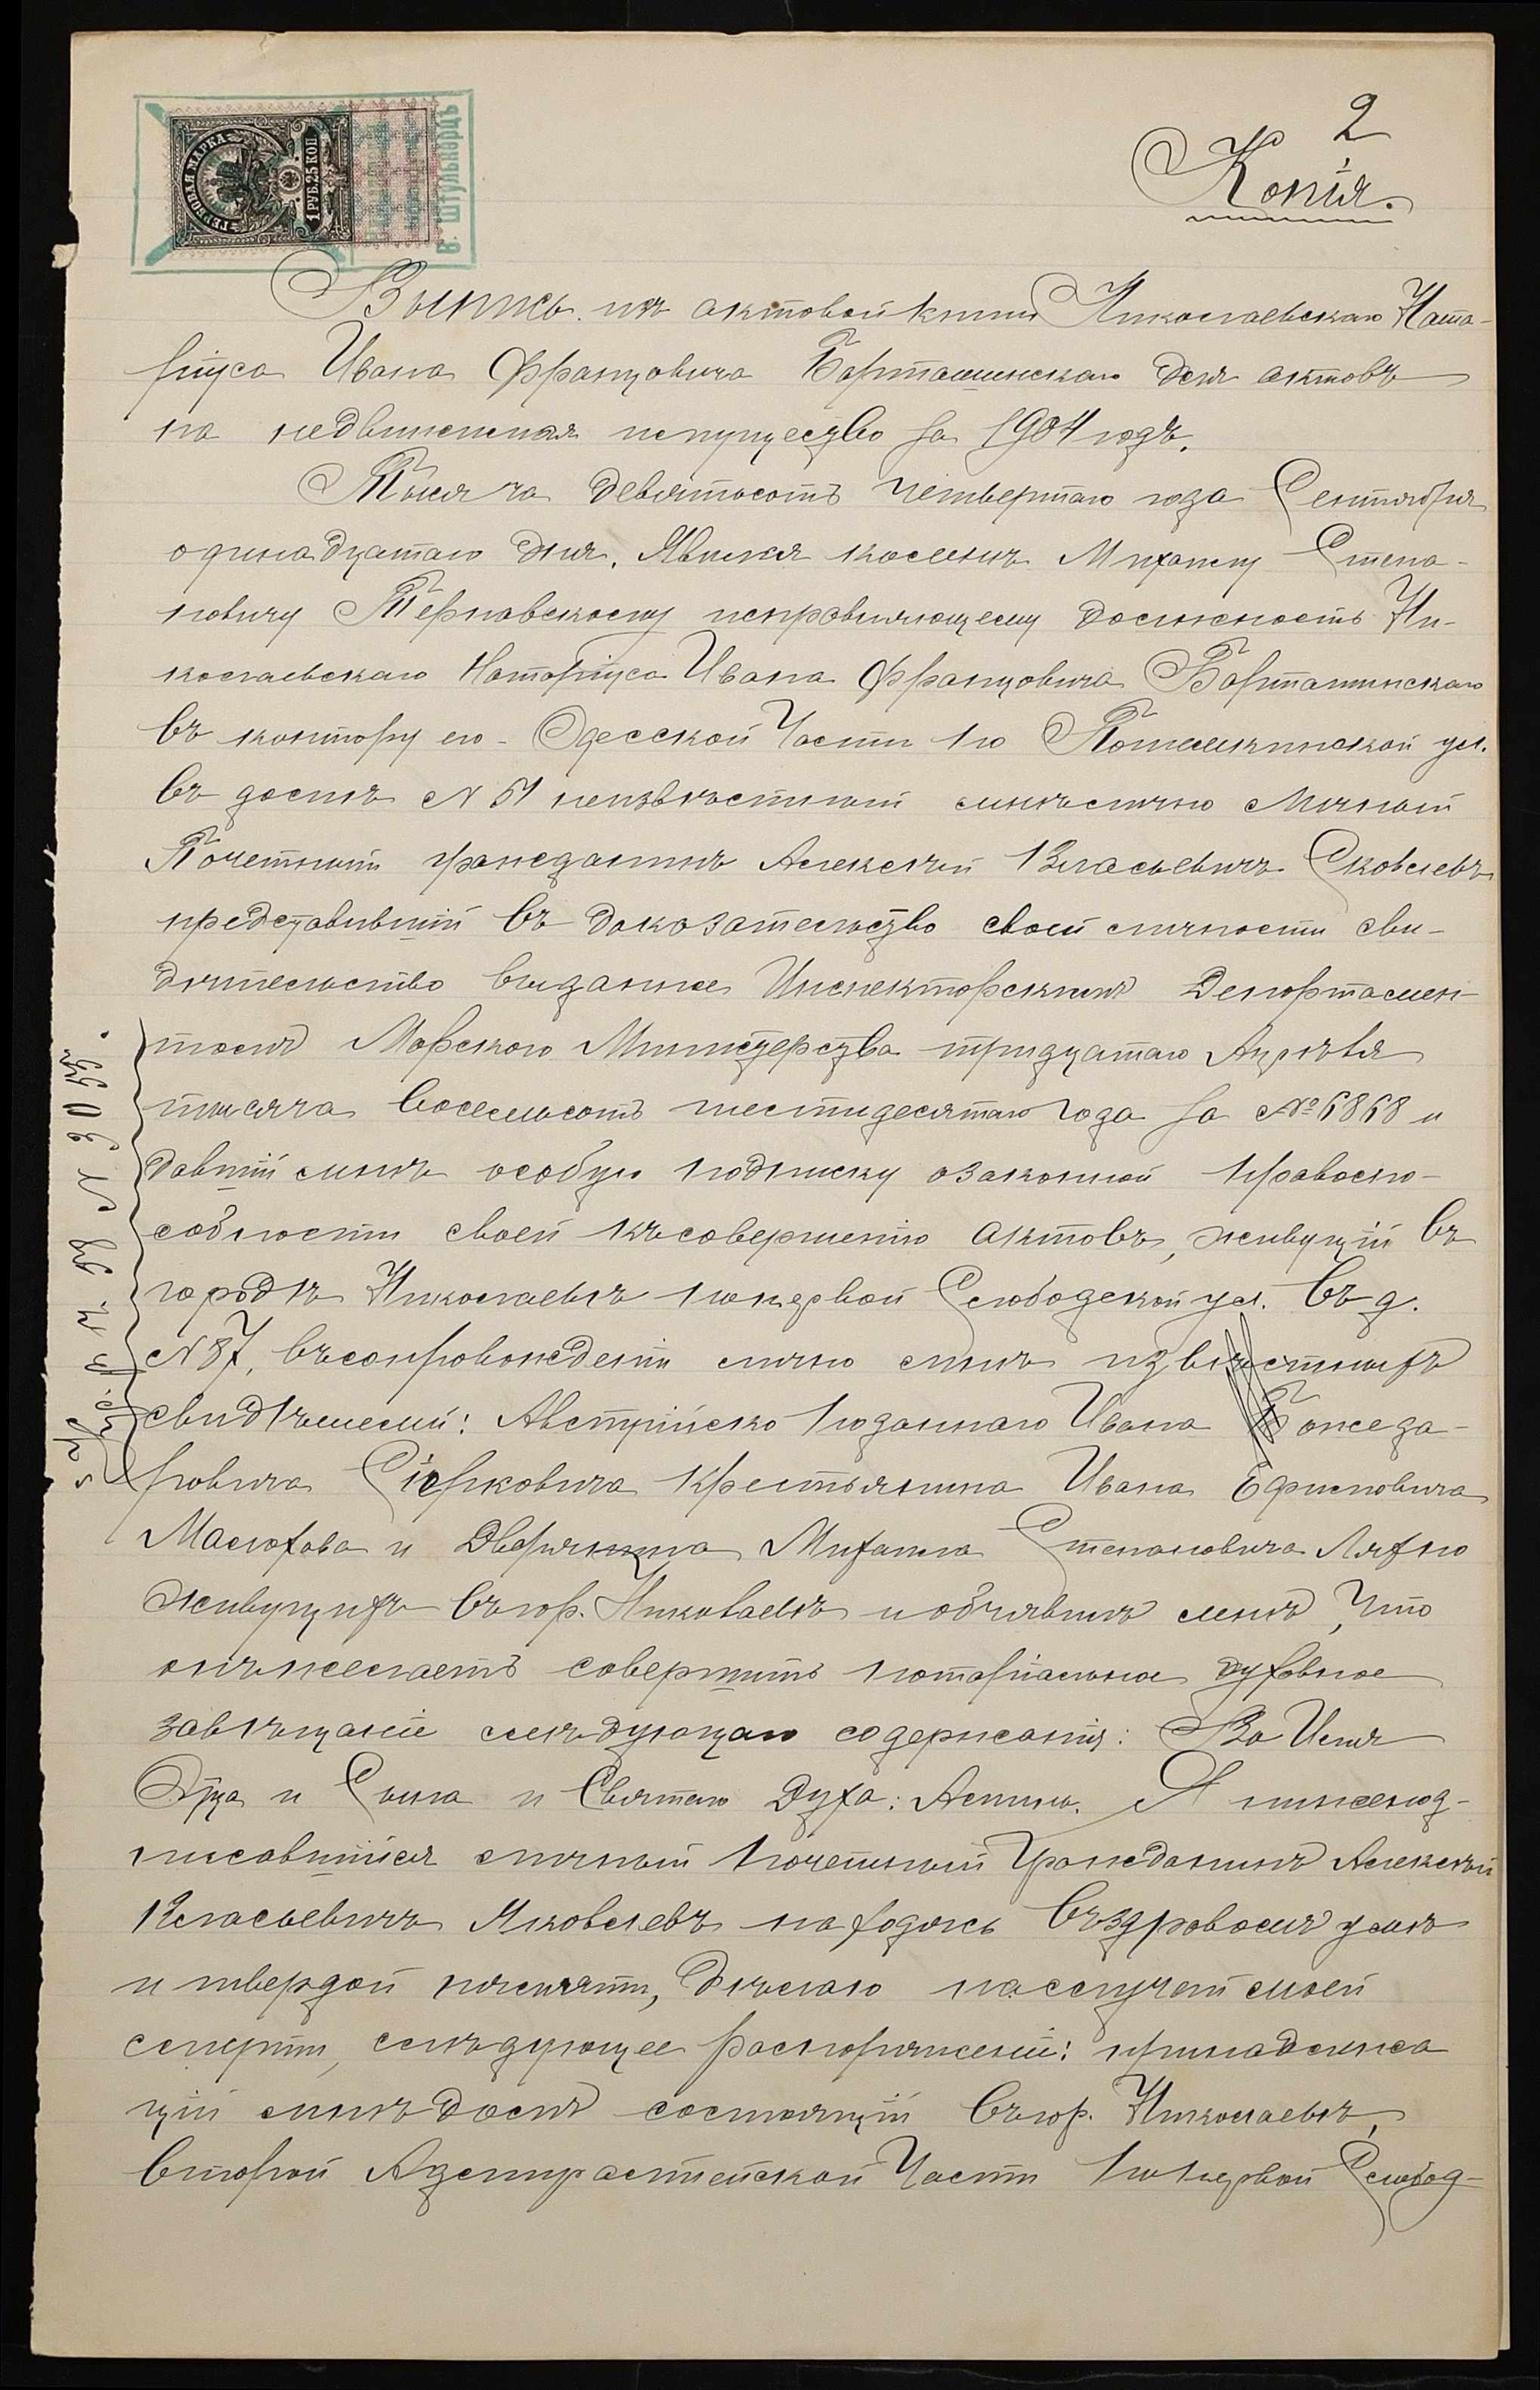 2
Копія.
ГЕРБОВАЯ МАРКА
1 РУБ. 25 КОП.
В. Штулькерцъ
Выпись изъ актовой книги Николаевскаго Нота-
ріуса Ивана Францовича Барташинскаго для актовъ
на недвижимая имущество за 1904 годъ.
Тысяча девятьсотъ четвертаго года Сентября
одинадцатаго дня. Явился ко мнѣ Михаилу Степа-
новичу Тернавскому исправляющему должность Ни-
колаевскаго Нотаріуса Ивана Францовича Барташинскаго
въ контору его Одесской Части по Потемкинской ул.
въ домѣ № 51 неизвѣстный мнѣ лично Личный
Почетный гражданинъ Алексѣй Власьевичъ Яковлевъ
представившій въ доказательство своей личности сви-
дѣтельство выданное Инспекторскимъ Департамен-
томъ Морского Министерства тридцатаго Апрѣля
тысяча восемьсотъ шестидесятаго года за № 6868 и
давшій мнѣ особую подписку о законной правоспо-
собности своей къ совершенію актовъ, живущій въ
городѣ Николаевѣ по первой Слободской ул. въ д.
№ 87, въ сопровожденіи лично мнѣ извѣстныхъ
свидѣтелей: Австрійско подданнаго Ивана Божеда-
ровича Сіерковича крестьянина Ивана Ефимовича
Маслохова и Дворянина Михаила Степановича Ляхно
живущихъ въ гор. Николаевѣ и объявилъ мнѣ, что
онъ желаетъ совершить нотаріальное духовное
завѣщаніе слѣдующаго содержанія: Во Имя
Отца и Сына и Святаго Духа: Аминь. Я нижепод-
писавшійся личный почетный гражданинъ Алексѣй
Власьевичъ Яковлевъ находясь въ здравомъ умѣ
и твердой памяти, дѣлаю на случай моей
смерти, слѣдующее распоряженіе: принадлежа
щій мнѣ домъ состоящій въ гор. Николаевѣ,
второй Адмиралтейской Части по первой Слобод-